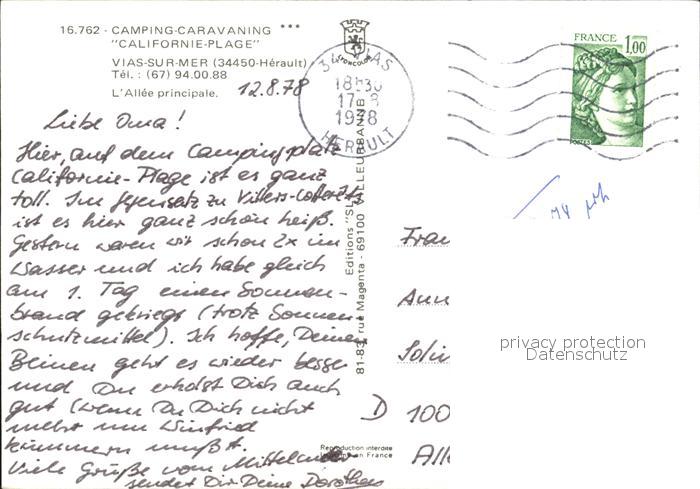 16.762 - CAMPING-CARAVANING ***
"CALIFORNIE-PLAGE"
VIAS-SUR-MER (34450-Hérault)
Tél. : (67) 94.00.88
L'Allée principale.
12.8.78
Liebe Oma!
Hier, auf dem Campingplatz
Californie-Plage ist es ganz
toll. Im Gegensatz zu Villers-Cotterêts
ist es hier ganz schön heiß.
Gestern waren wir schon 2x im
Wasser und ich habe gleich
am 1. Tag einen Sonnen-
brand gekriegt (trotz Sonnen-
schutzmittel). Ich hoffe, Deinen
Beinen geht es wieder besser
und Du erholst Dich auch
gut (wenn Du Dich nicht
mehr um Winfried
kümmern mußt.
Viele Grüße vom Mittelmeer
sendet Dir Deine Dorothea
Editions "S
81-83, rue Magenta - 69100 VILLEURBANNE
Reproduction interdite
in France
34 VIAS
18h30
17-8
1978
HERAULT
FRANCE
1,00
POSTES
Frau
Ann
Solin
D 100
All
privacy protection
Datenschutz